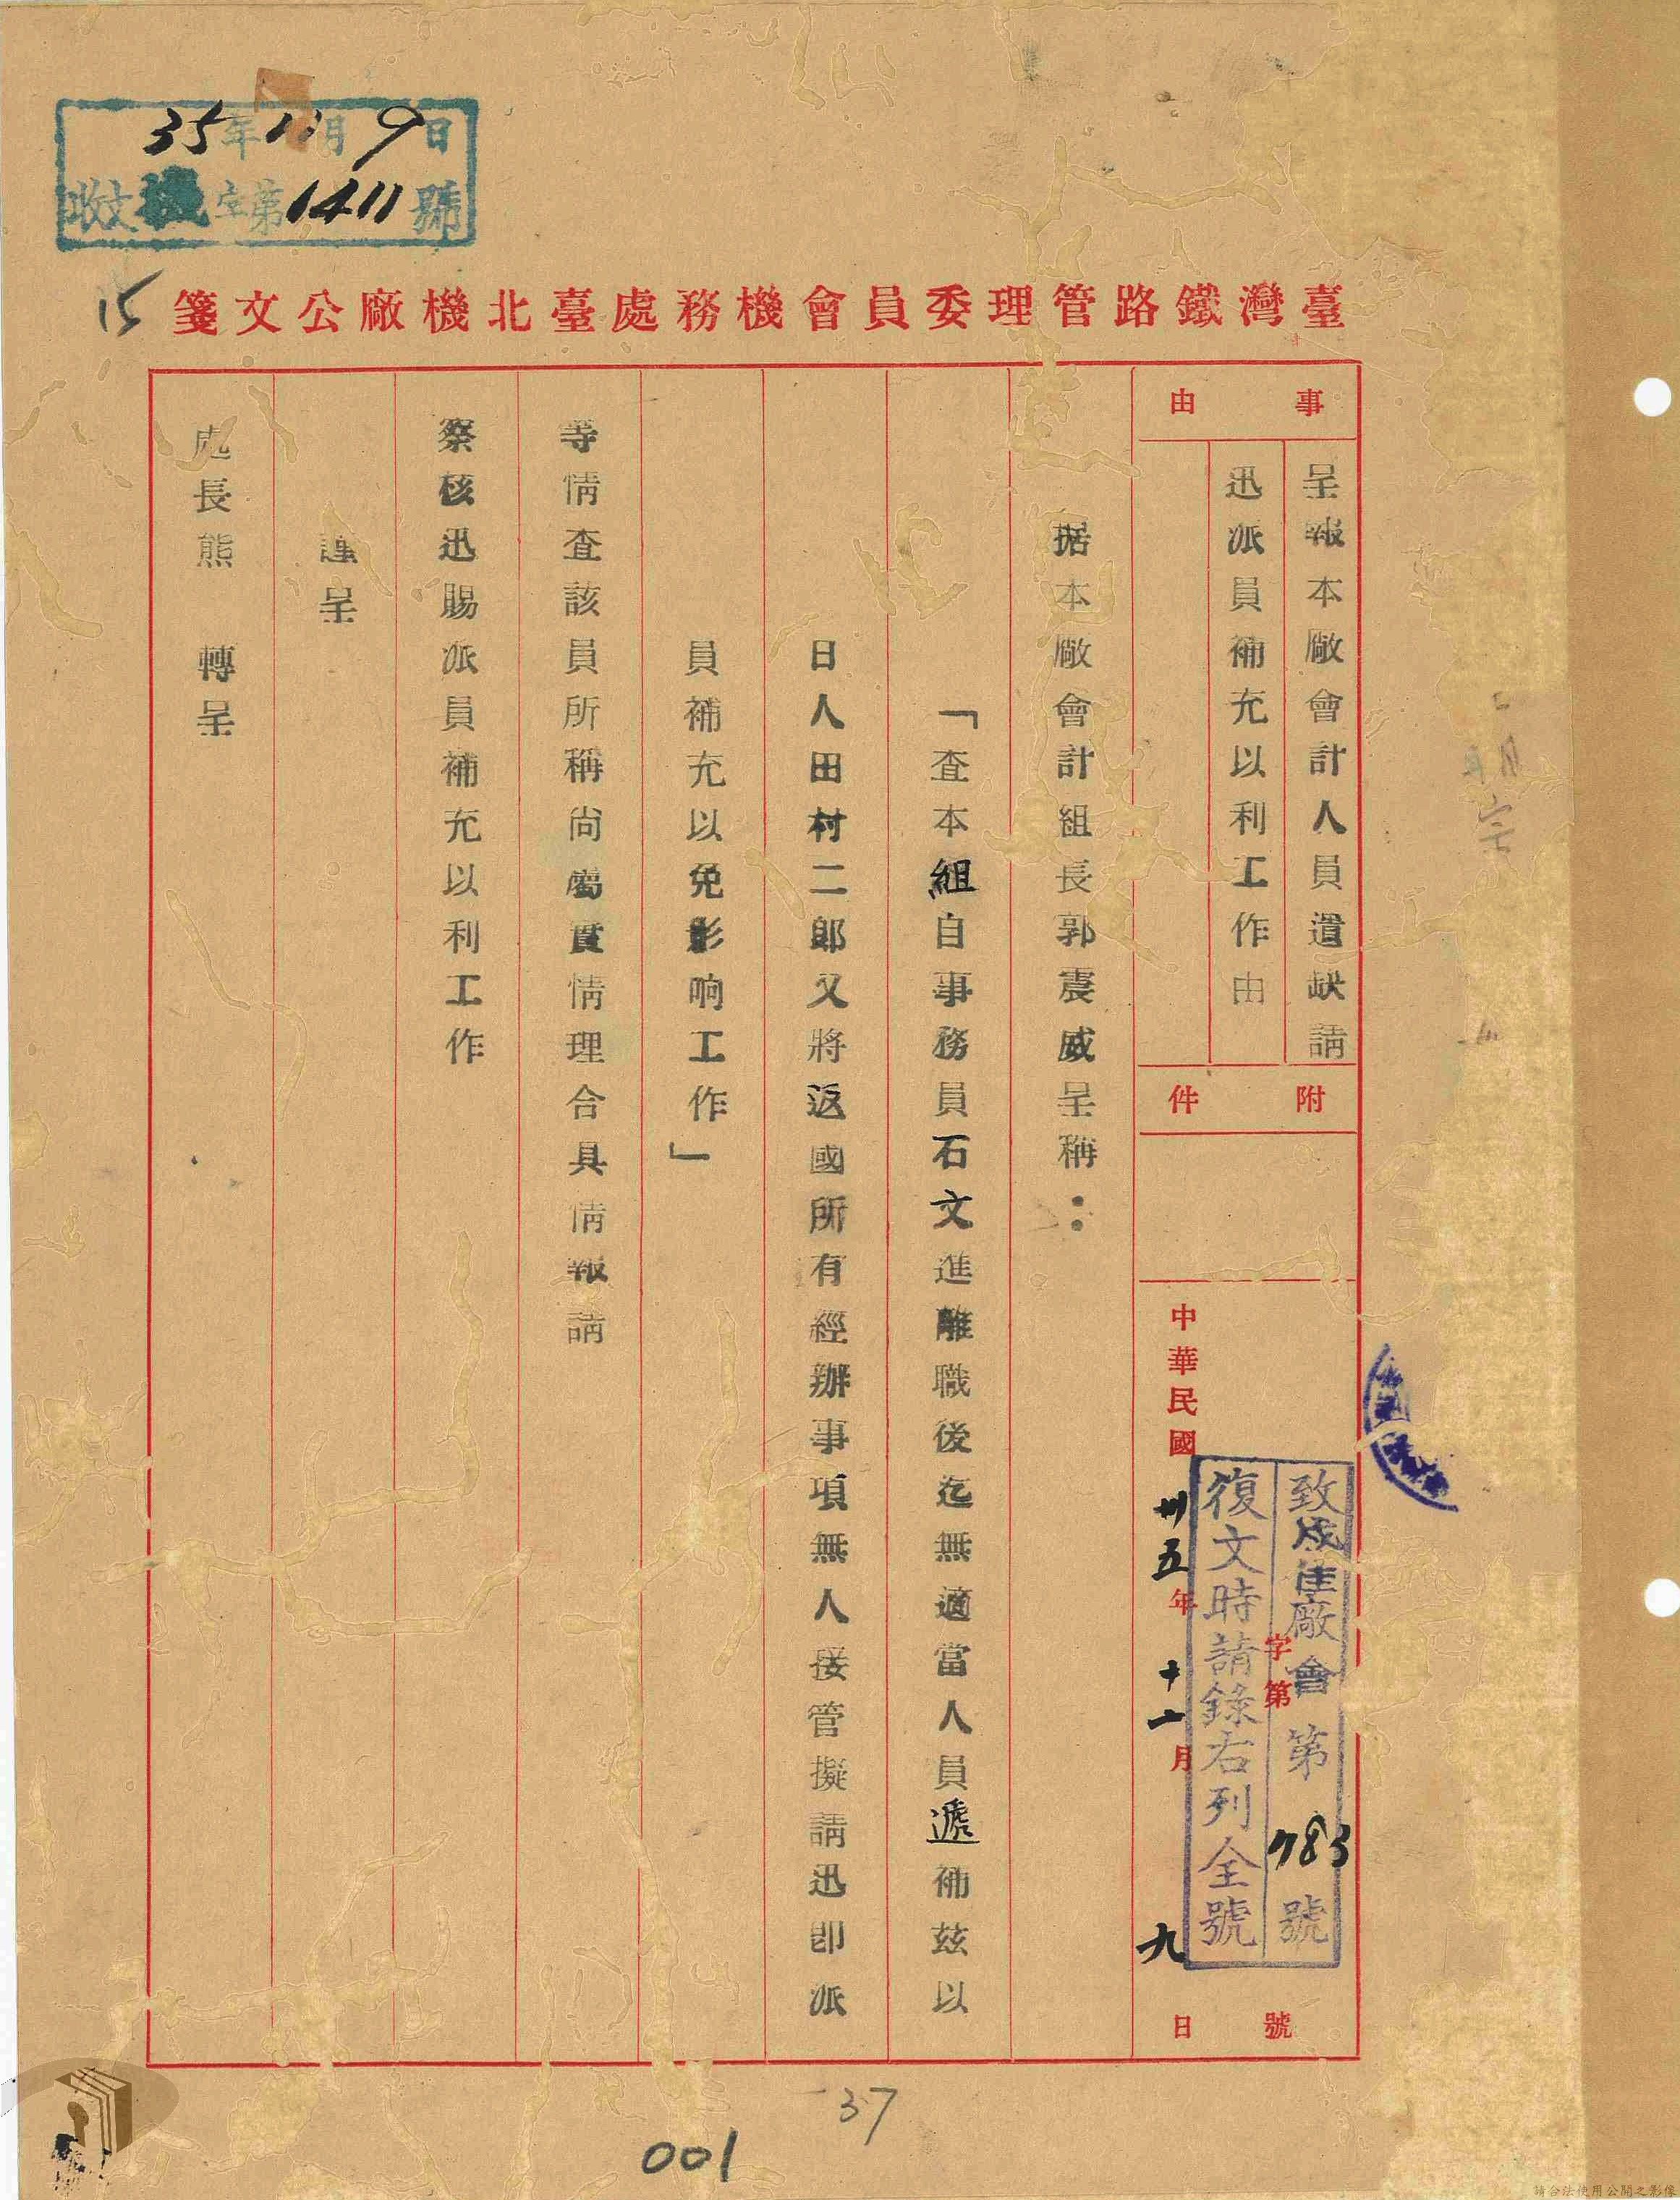 35年11月9日
收文機字第1411號
15
臺灣鐵路管理委員會機務處臺北機廠公文箋
事由
呈報本廠會計人員遺缺請
迅派員補充以利工作由
附件
中華民國卅五年十一月九日
字第號
致戌佳廠會第783號
復文時請錄右列全號
据本廠會計組長郭震威呈稱：
「查本組自事務員石文進離職後迄無適當人員遞補茲以
日人田村二郎又將返國所有經辦事項無人接管擬請迅即派
員補充以免影响工作」
等情查該員所稱尚屬實情理合具情報請
察核迅賜派員補充以利工作
謹呈
處長熊 轉呈
37
001
請合法使用公開之影像